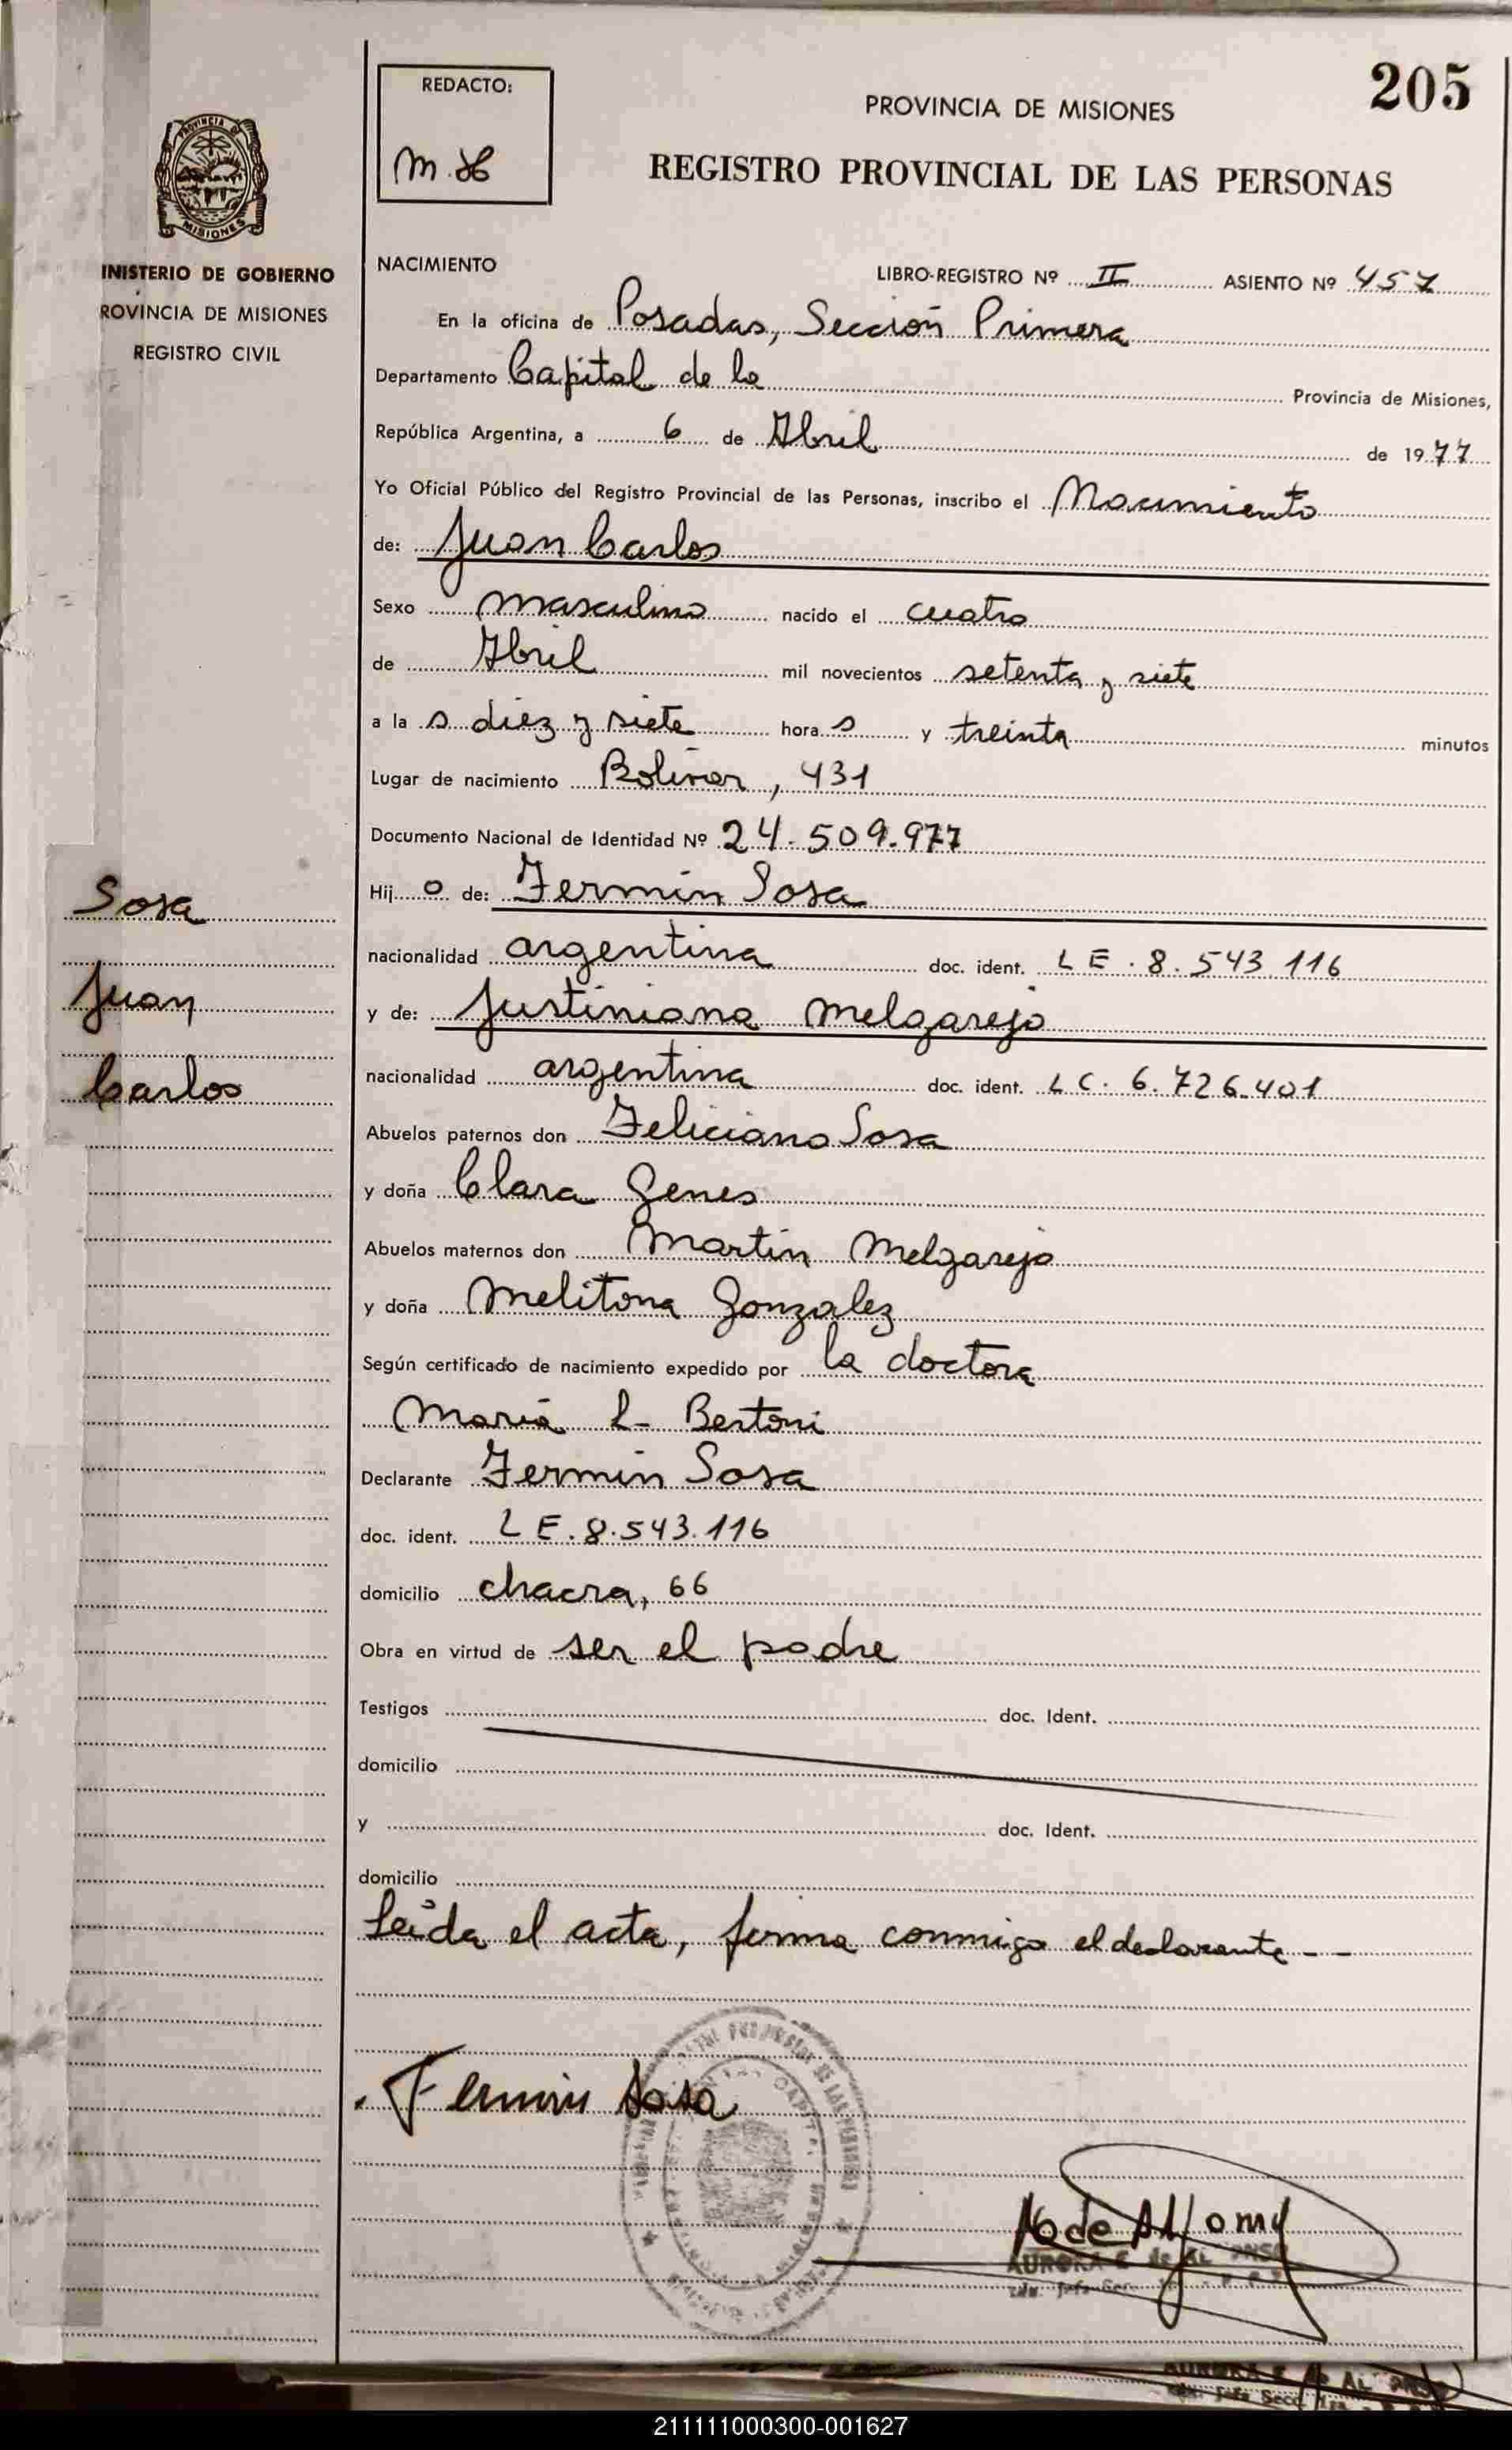 205
REDACTO:
PROVINCIA DE MISIONES
REGISTRO PROVINCIAL DE LAS PERSONAS
PROVINCIA DE
MISIONES
INISTERIO DE GOBIERNO
ROVINCIA DE MISIONES
REGISTRO CIVIL
NACIMIENTO LIBRO-REGISTRO Nº II ASIENTO Nº 457
En la oficina de Posadas, Sección Primera
Departamento Capital de la Provincia de Misiones,
República Argentina, a 6 de Abril de 1977
Yo Oficial Público del Registro Provincial de las Personas, inscribo el Nacimiento
de: Juan Carlos
Sexo masculino nacido el cuatro
de Abril mil novecientos setenta y siete
a la s diez y siete hora s y treinta minutos
Lugar de nacimiento Bolívar, 431
Documento Nacional de Identidad Nº 24.509.977
Hij o de: Fermín Sosa
nacionalidad argentina doc. ident. LE. 8.543.116
y de: Justiniana Melgarejo
nacionalidad argentina doc. ident. LC. 6.726.401
Abuelos paternos don Feliciano Sosa
y doña Clara Genes
Abuelos maternos don Martín Melgarejo
y doña Melitona Gonzalez
Según certificado de nacimiento expedido por la doctora
María L. Bertoni
Declarante Fermín Sosa
doc. ident. LE. 8.543.116
domicilio chacra, 66
Obra en virtud de ser el padre
Testigos doc. Ident.
domicilio
y doc. Ident.
domicilio
Leída el acta, firma conmigo el declarante - -
Sosa
Juan
Carlos
Fermin Sosa
AURORA E. de AL
AURORA E. de AL
211111000300-001627